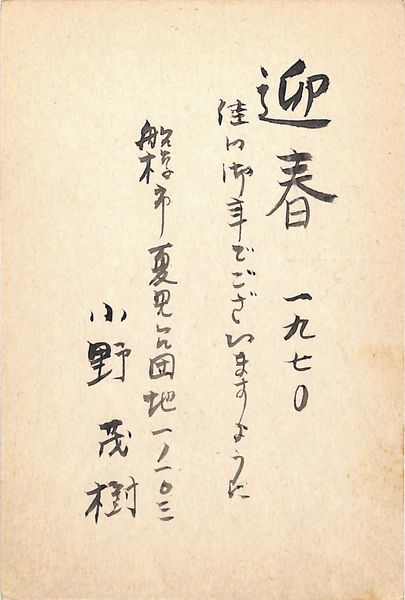 迎春 一九七〇
佳い御年でございますように
船橋市夏見台団地一ノ一〇三
小野茂樹